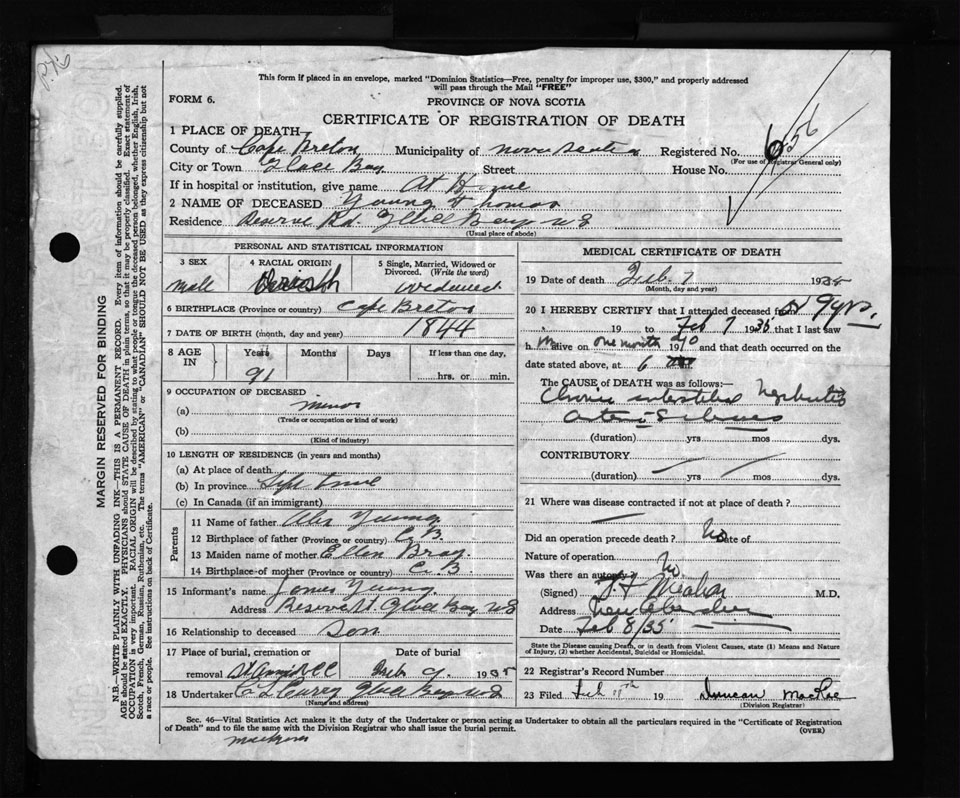 This form if placed in an envelope, marked "Dominion Statistics—Free, penalty for improper use, $300," and properly addressed
will pass through the Mail "FREE"
FORM 6.
PROVINCE OF NOVA SCOTIA
CERTIFICATE OF REGISTRATION OF DEATH
1 PLACE OF DEATH
County of Cape Breton Municipality of Nova Scotia Registered No. 656
(For use of Registrar General only)
City or Town Glace Bay Street House No.
If in hospital or institution, give name At Home
2 NAME OF DECEASED Young Thomas
Residence Reserve Rd. Glace Bay NS
(Usual place of abode)
PERSONAL AND STATISTICAL INFORMATION
3 SEX
male
4 RACIAL ORIGIN
5 Single, Married, Widowed or
Divorced. (Write the word)
6 BIRTHPLACE (Province or country) Cape Breton
7 DATE OF BIRTH (month, day and year) 1844
8 AGE
IN
Years Months Days If less than one day,
91 hrs. or min.
9 OCCUPATION OF DECEASED
(a) miner
(Trade or occupation or kind of work)
(b)
(Kind of industry)
10 LENGTH OF RESIDENCE (in years and months)
(a) At place of death
(b) In province Life Time
(c) In Canada (if an immigrant)
Parents
11 Name of father Alex Young
12 Birthplace of father (Province or country) C.B.
13 Maiden name of mother Ellen Bray
14 Birthplace of mother (Province or country) C.B
15 Informant's name James Young
Address Reserve St. Glace Bay NS
16 Relationship to deceased son
17 Place of burial, cremation or Date of burial
removal 9 1935
18 Undertaker Curry Glace Bay NS
(Name and address)
MEDICAL CERTIFICATE OF DEATH
19 Date of death Feb. 7 1935
(Month, day and year)
20 I HEREBY CERTIFY that I attended deceased from 9 yrs.
19 to Feb 7 1935 that I last saw
h m alive on one month ago 19 and that death occurred on the
date stated above, at 6
The CAUSE of DEATH was as follows:—
Chronic interstitial Nephritis
Arterio Sclerosis
(duration) yrs mos dys.
CONTRIBUTORY
(duration) yrs mos dys.
21 Where was disease contracted if not at place of death ?
Did an operation precede death ? No Date of
Nature of operation
Was there an autopsy ? No
(Signed) M.D.
Address New Aberdeen
Date Feb 8/35
State the Disease causing Death, or in death from Violent Causes, state (1) Means and Nature
of Injury, (2) whether Accidental, Suicidal or Homicidal.
22 Registrar's Record Number
23 Filed Feb 19 Duncan MacRae
(Division Registrar)
Sec. 46—Vital Statistics Act makes it the duty of the Undertaker or person acting as Undertaker to obtain all the particulars required in the "Certificate of Registration
of Death" and to file the same with the Division Registrar who shall issue the burial permit.
(OVER)
MARGIN RESERVED FOR BINDING
N.B.—WRITE PLAINLY WITH UNFADING INK—THIS IS A PERMANENT RECORD. Every item of information should be carefully supplied.
AGE should be stated EXACTLY. PHYSICIANS should STATE CAUSE OF DEATH in plain terms, so that it may be properly classified. Exact statement of
OCCUPATION is very important. RACIAL ORIGIN will be described by stating to what people or tongue the deceased person belonged, whether English, Irish,
Scotch, French, German, Russian, Ruthenian, etc. The terms "AMERICAN" or "CANADIAN" SHOULD NOT BE USED as they express citizenship but not
a race or people. See instructions on back of Certificate.